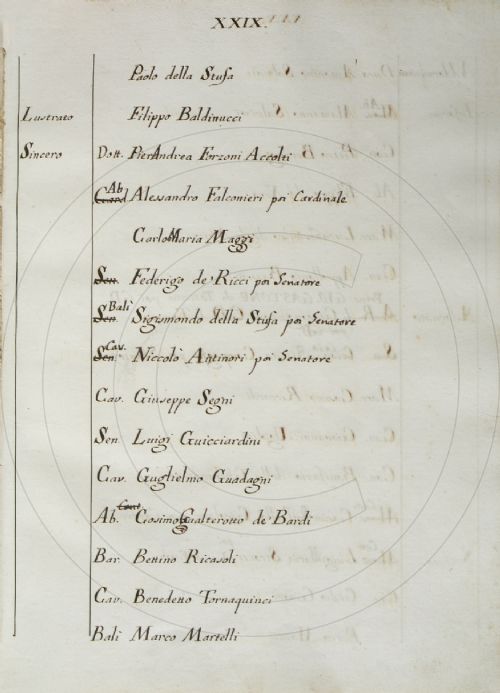 XXIX.
Paolo della Stufa
Lustrato Filippo Baldinucci
Sincero Dott. PierAndrea Forzoni Accolti
Ab Alessandro Falconieri poi Cardinale
Carlo Maria Maggi
Sen. Federigo de Ricci poi Senatore
Sen. Bali Sigismondo della Stufa poi Senatore
Sen. Cav. Niccolò Antinori poi Senatore
Cav. Giuseppe Segni
Sen. Luigi Guicciardini
Cav. Guglielmo Guadagni
Ab. Cont. Cosimo Gualterotto de Bardi
Bar. Bettino Ricasoli
Cav. Benedetto Tornaquinci
Bali Marco Martelli